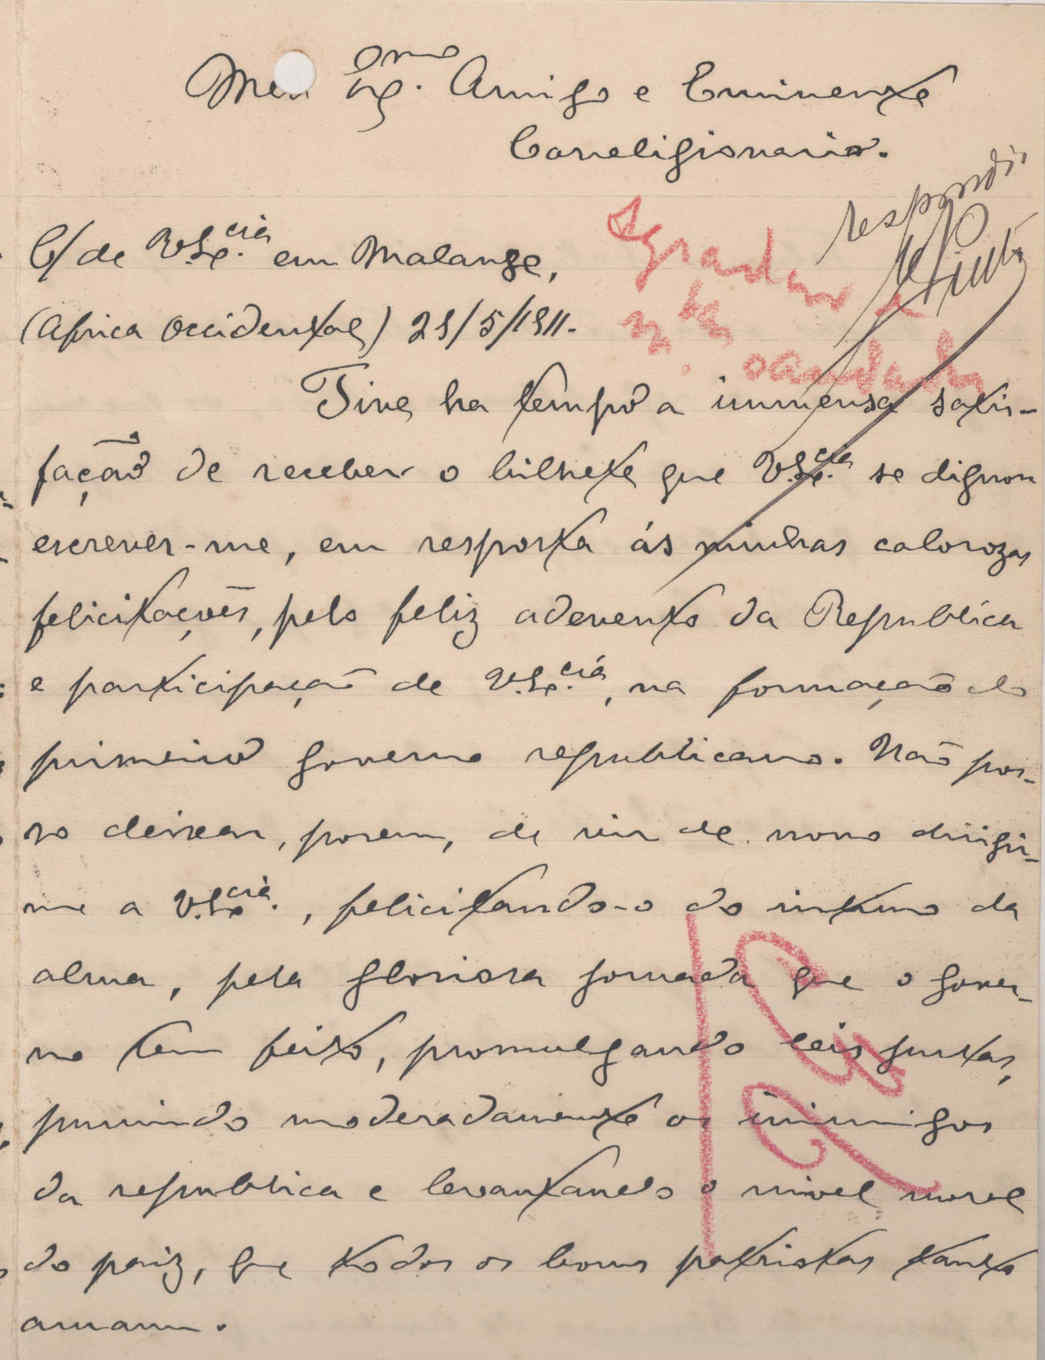 Meu Amigo e Eminente
Correligionario.
respondi
C/ de V. Ex.cia em Malange,
(Africa Occidental) 29/5/1911.
Agradecer
saudades
Tive, ha tempo a immensa satis-
fação de receber o bilhete que V. Ex.cia se dignou
escrever-me, em resposta ás minhas calorozas
felicitações, pelo feliz advento da Republica
e participação de V. Ex.cia, na formação do
primeiro governo republicano. Não pos-
so deixar, porem, de vir de novo dirigir-
me a V. Ex.cia, felicitando-o do intimo da
alma, pela gloriosa jornada que o gover-
no tem feito, promulgando leis justas,
punindo moderadamente os inimigos
da republica e levantando o nivel moral
do paiz, que todos os bons patriotas tanto
amam.